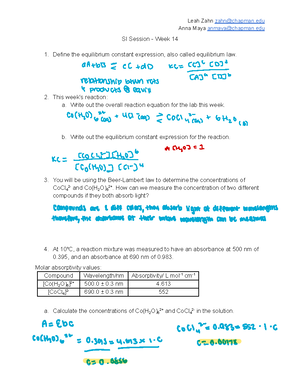 Leah Zahn zahn@chapman.edu
Anna Maya anmaya@chapman.edu
SI Session - Week 14
1. Define the equilibrium constant expression, also called equilibrium law.
aA + bB ⇌ cC + dD    Kc = [C]^c [D]^d / [A]^a [B]^b
relationship btwn rcts
& products @ equib
2. This week's reaction:
a. Write out the overall reaction equation for the lab this week.
Co(H2O)6 2+ (aq) + 4Cl- (aq) ⇌ CoCl4 2- (aq) + 6H2O (l)
b. Write out the equilibrium constant expression for the reaction.
Kc = [CoCl4 2-][H2O]^6 / [Co(H2O)6 2+][Cl-]^4
a (H2O) = 1
3. You will be using the Beer-Lambert law to determine the concentrations of
CoCl4 2- and Co(H2O)6 2+. How can we measure the concentration of two different
compounds if they both absorb light?
Compounds are 2 diff colors, they absorb light at different wavelengths
therefore, the absorbance at their unique wavelength can be measured
4. At 10°C, a reaction mixture was measured to have an absorbance at 500 nm of
0.395, and an absorbance at 690 nm of 0.983.
Molar absorptivity values:
Compound Wavelength/nm Absorptivity/ L mol-1 cm-1
[Co(H2O)6]2+ 500.0 ± 0.3 nm 4.613
[CoCl4]2- 690.0 ± 0.3 nm 552
a. Calculate the concentrations of Co(H2O)6 2+ and CoCl4 2- in the solution.
A = εbc
CoCl4 2- = 0.983 = 552 · 1 · C
Co(H2O)6 2+ = 0.395 = 4.613 × 1 · C
C = 0.00178
C = 0.0856